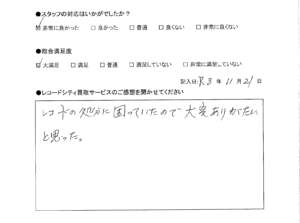 ●スタッフの対応はいかがでしたか？
☑ 非常に良かった □ 良かった □ 普通 □ 良くない □ 非常に良くない
●総合満足度
☑ 大満足 □ 満足 □ 普通 □ 満足していない □ 非常に満足していない
記入日: R3年 11月 21日
●レコードシティ買取サービスのご感想を聞かせてください
レコードの処分に困っていたので大変ありがたい
と思った。